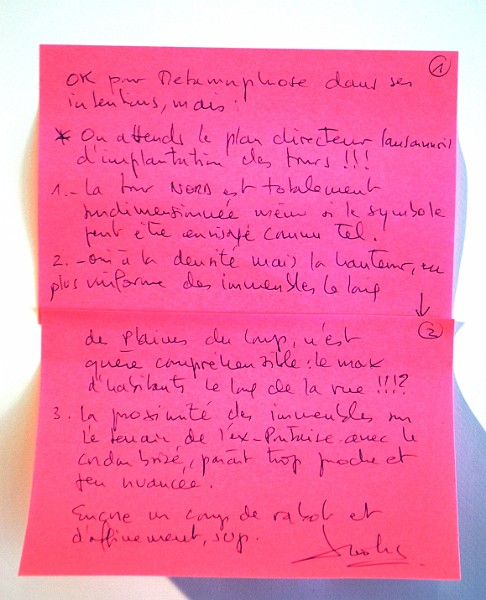 ①
OK pour Métamorphose dans ses
intentions, mais :
* On attends le plan directeur lausannois
d'implantation des tours !!!
1.- La tour NORD est totalement
surdimensionnée même si le symbole
peut être envisagé comme tel.
2.- oui à la densité mais la hauteur, en
plus uniforme des immeubles le long
②
de Plaines du Loup, n'est
guère compréhensible : le max
d'habitants le long de la rue !!!?
3. La proximité des immeubles sur
le terrain de l'ex-Pontaise avec le
cordon brisé, paraît trop proche et
peu nuancée.
Encore un coup de rabot et
d'affinement, svp.